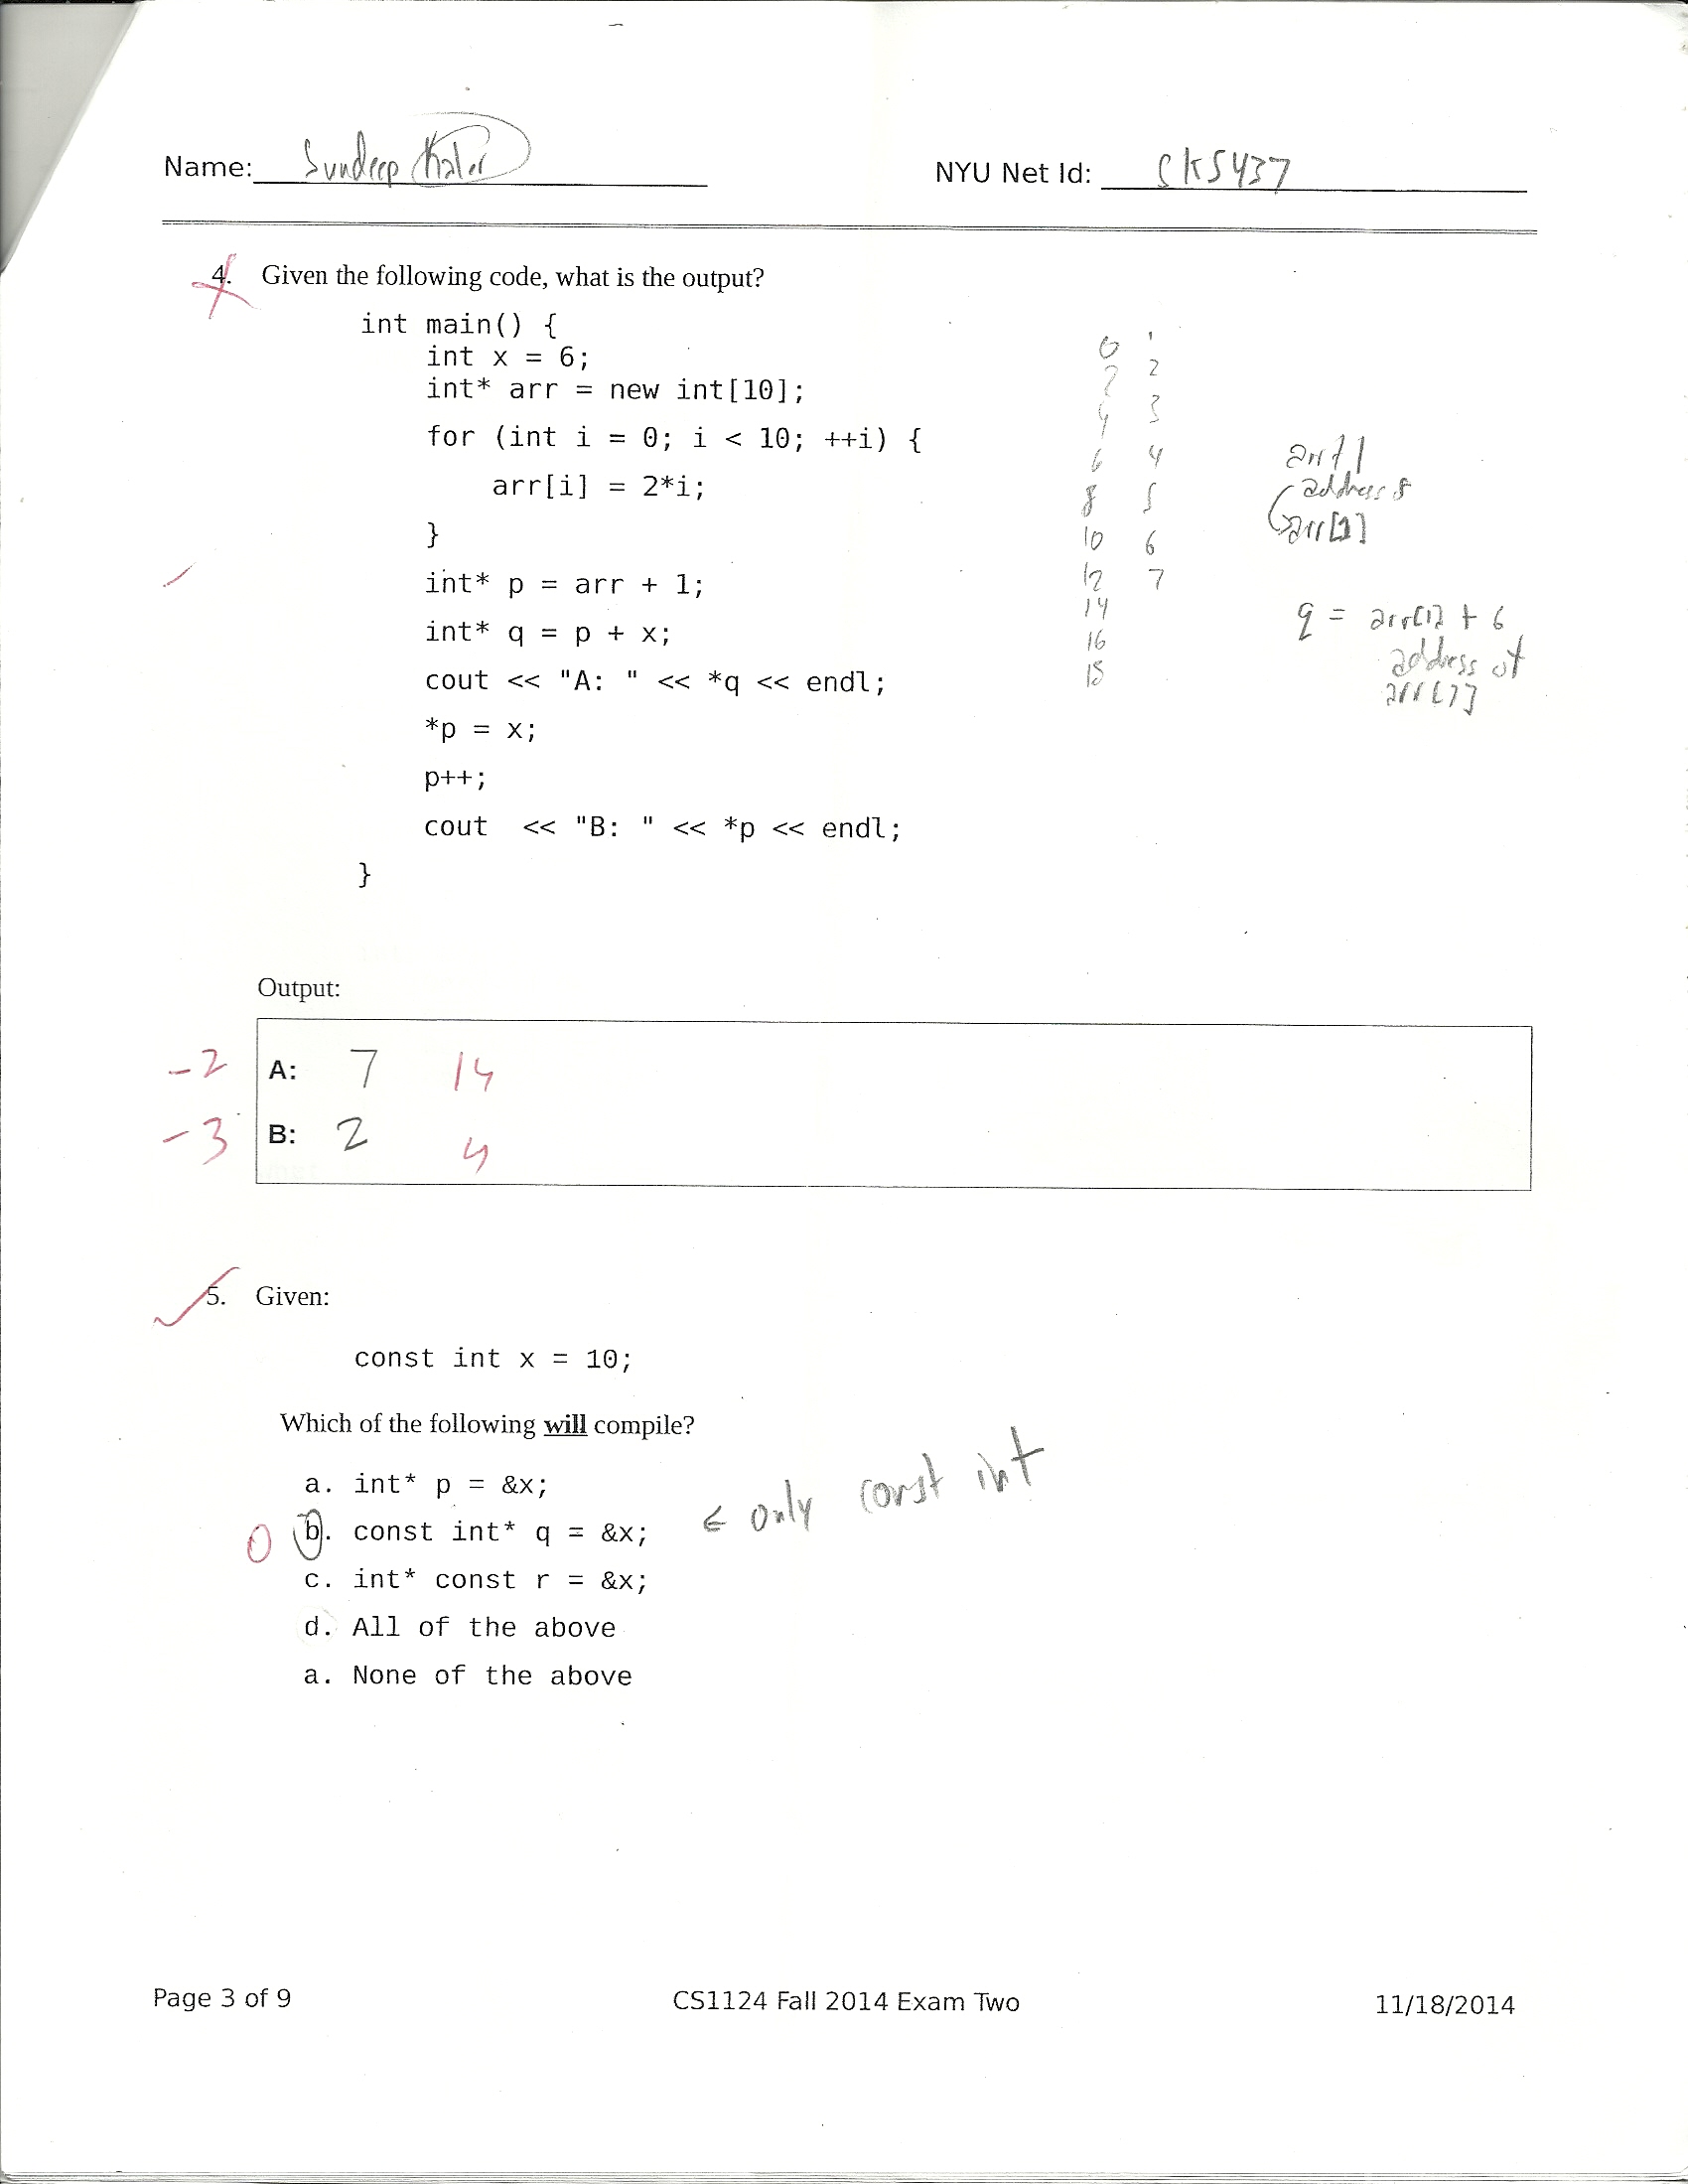 Name: Sundeep
NYU Net Id: sk5437
4. Given the following code, what is the output?
int main() {
int x = 6;
int* arr = new int[10];
for (int i = 0; i < 10; ++i) {
arr[i] = 2*i;
}
int* p = arr + 1;
int* q = p + x;
cout << "A: " << *q << endl;
*p = x;
p++;
cout  << "B: " << *p << endl;
}
0 1
2 2
4 3
6 4
8 5
10 6
12 7
14
16
18
arr+1
address of
arr[1]
q = arr[1] + 6
address of
arr[7]
Output:
-2 A: 7 14
-3 B: 2 4
5. Given:
const int x = 10;
Which of the following will compile?
a. int* p = &x;
0 b. const int* q = &x; ← only const int
c. int* const r = &x;
d. All of the above
a. None of the above
Page 3 of 9 CS1124 Fall 2014 Exam Two 11/18/2014